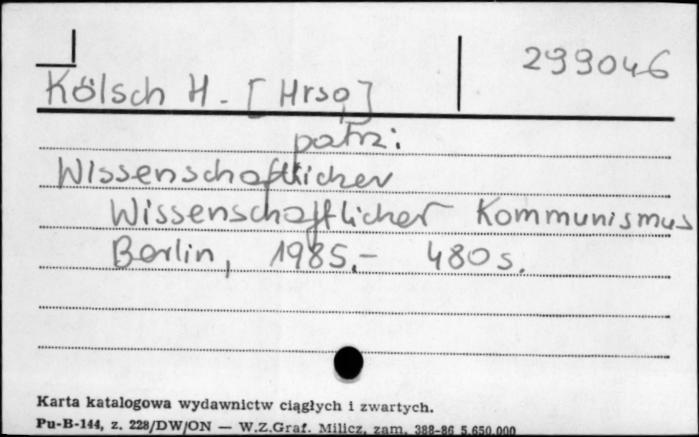 299046
Kölsch H. [Hrsg]
patrz:
Wissenschaftlicher
Wissenschaftlicher Kommunismus
Berlin, 1985.- 480 s.
Karta katalogowa wydawnictw ciągłych i zwartych.
Pu-B-144, z. 228/DW/ON — W.Z.Graf. Milicz, zam. 388-86 5.650.000